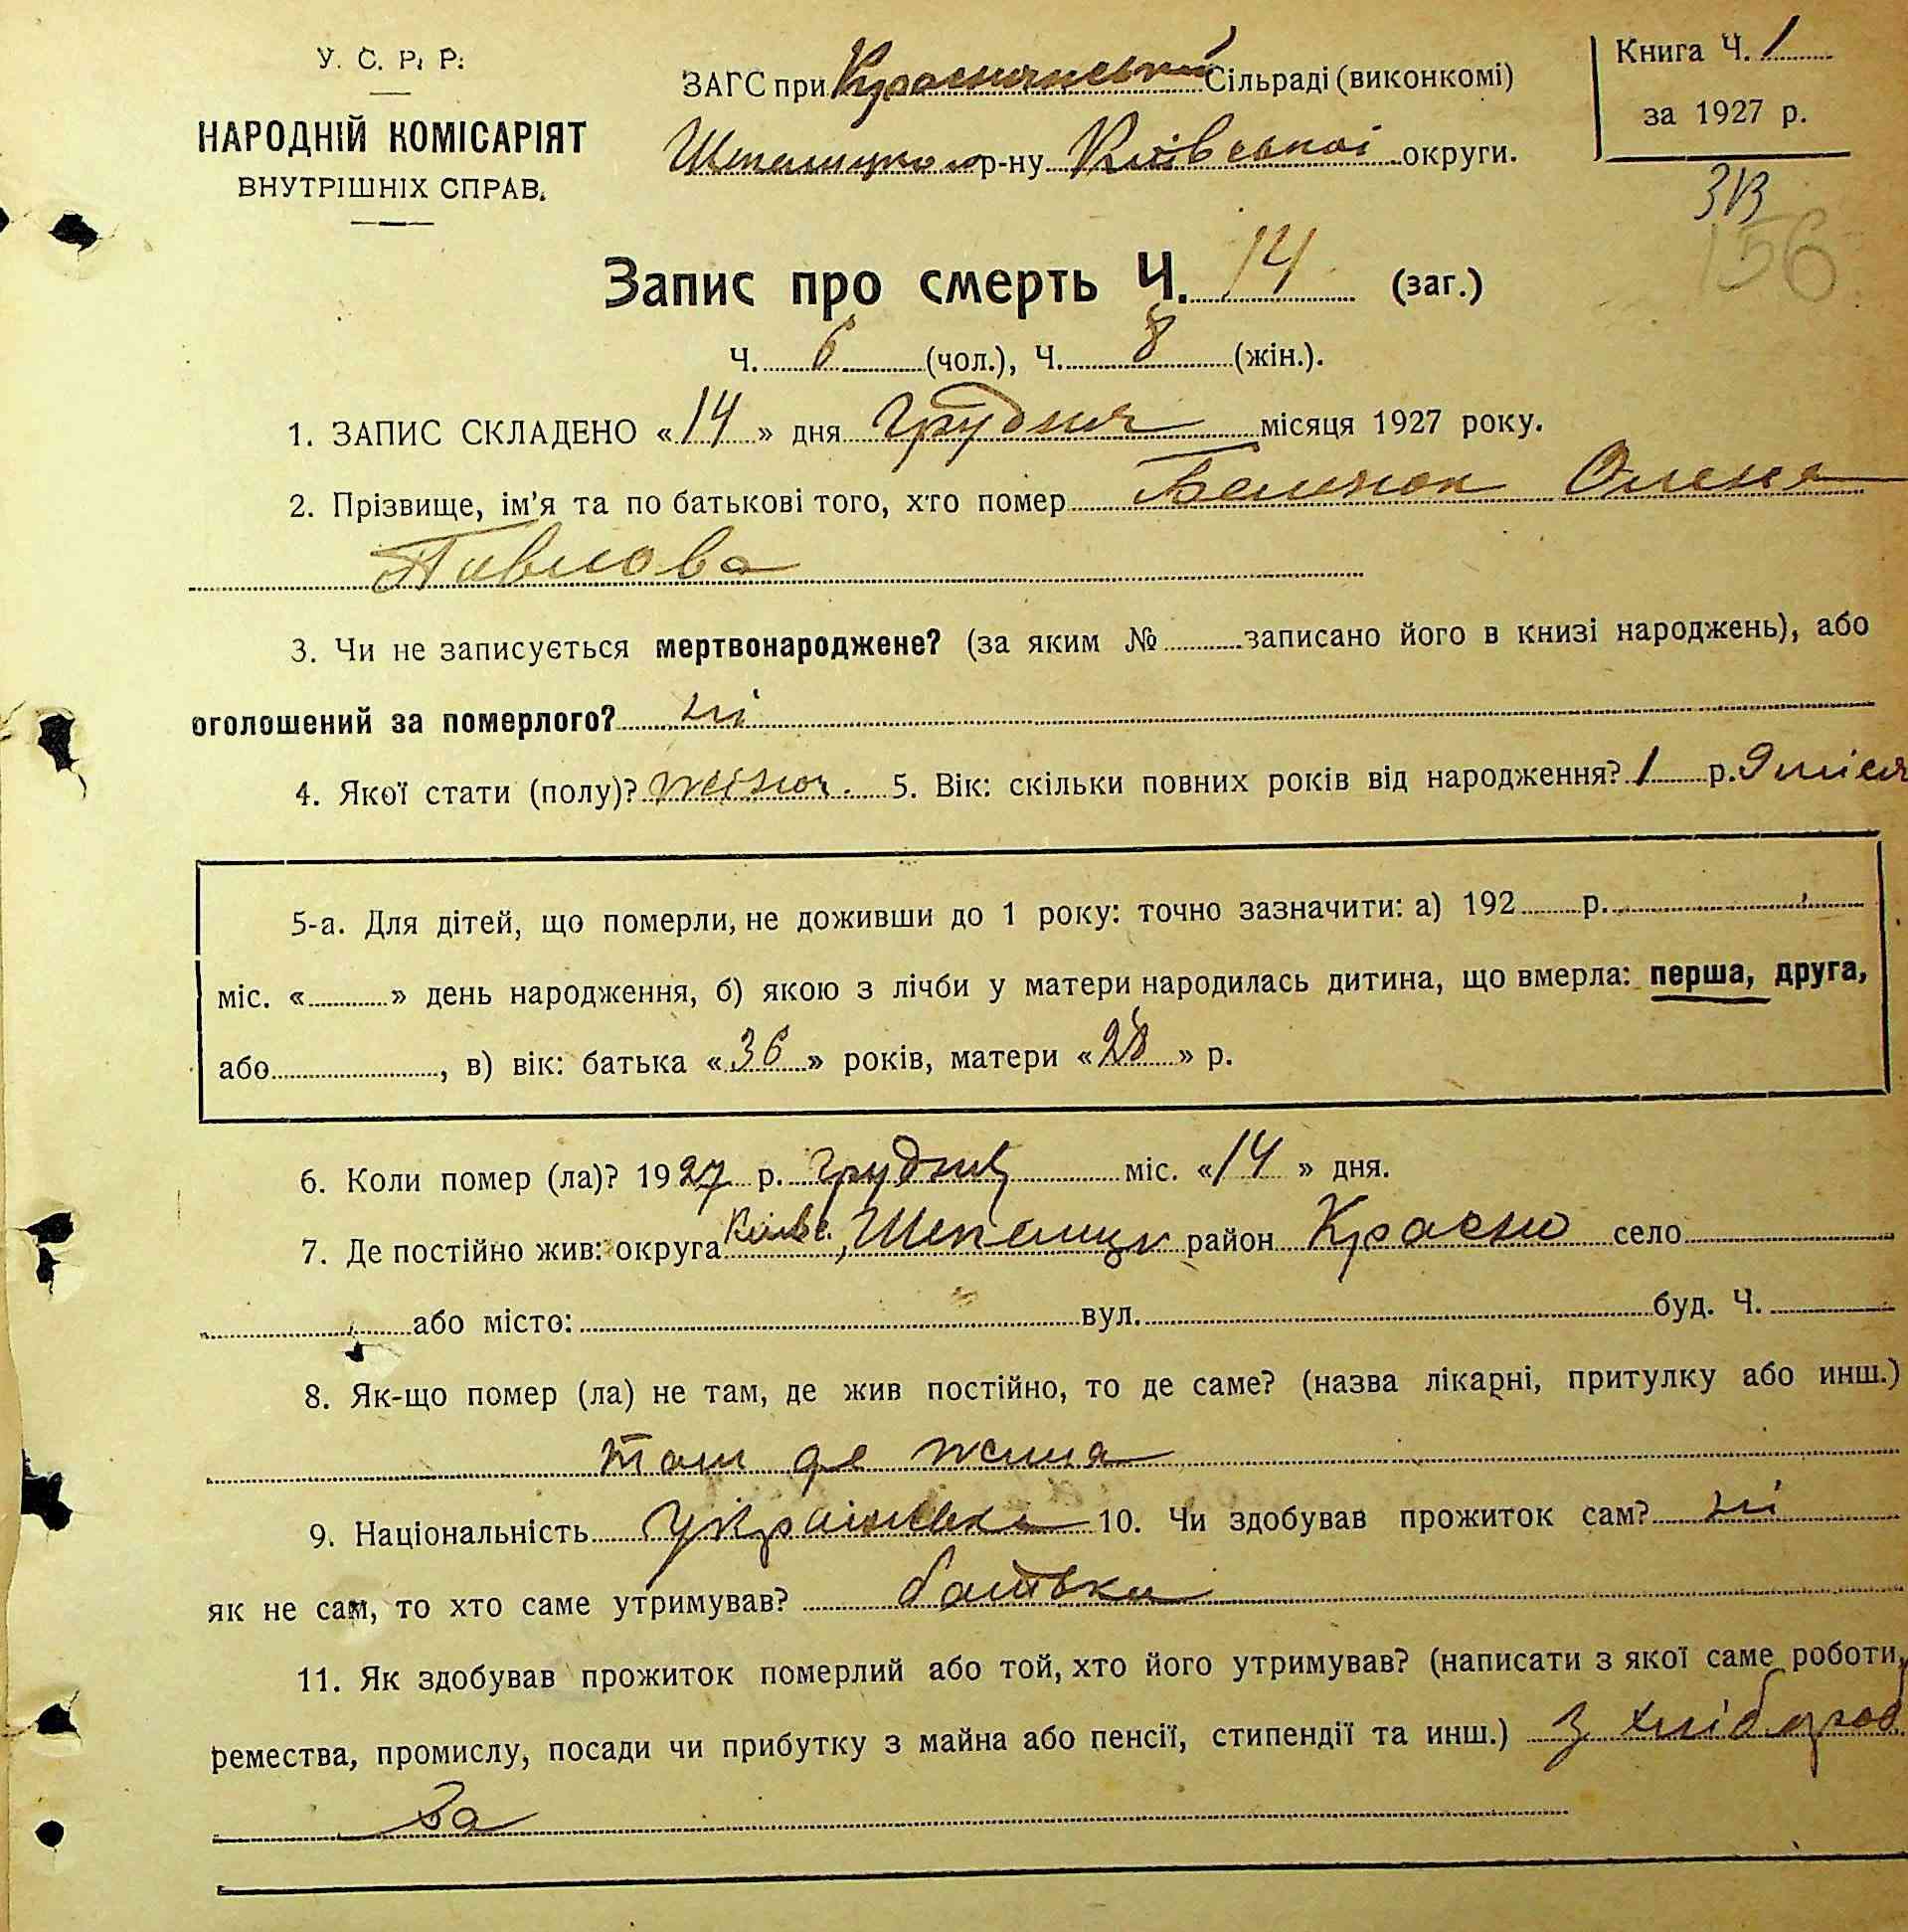 У. С. Р. Р.
НАРОДНІЙ КОМІСАРІЯТ
ВНУТРІШНІХ СПРАВ.
ЗАГС при Красняньській Сільраді (виконкомі)
р-ну Київської округи.
Книга Ч. 1
за 1927 р.
156
Запис про смерть Ч. 14 (заг.)
Ч. 6 (чол.), Ч. 8 (жін.).
1. ЗАПИС СКЛАДЕНО «14» дня Грудня місяця 1927 року.
2. Прізвище, ім'я та по батькові того, хто помер Олена
Павлова
3. Чи не записується мертвонароджене? (за яким № записано його в книзі народжень), або
оголошений за померлого? ні
4. Якої стати (полу)? жіноч. 5. Вік: скільки повних років від народження? 1 р. 9 міся
5-а. Для дітей, що померли, не доживши до 1 року: точно зазначити: а) 192 р.
міс. « » день народження, б) якою з лічби у матери народилась дитина, що вмерла: перша, друга,
або , в) вік: батька «36» років, матери «28» р.
6. Коли помер (ла)? 1927 р. грудня міс. «14» дня.
7. Де постійно жив: округа Київс., район Красно село
або місто: вул. буд. Ч.
8. Як-що помер (ла) не там, де жив постійно, то де саме? (назва лікарні, притулку або инш.)
там де жила
9. Національність українка 10. Чи здобував прожиток сам? ні
як не сам, то хто саме утримував? батьки
11. Як здобував прожиток померлий або той, хто його утримував? (написати з якої саме роботи,
ремества, промислу, посади чи прибутку з майна або пенсії, стипендії та инш.) З хлібороб
ва